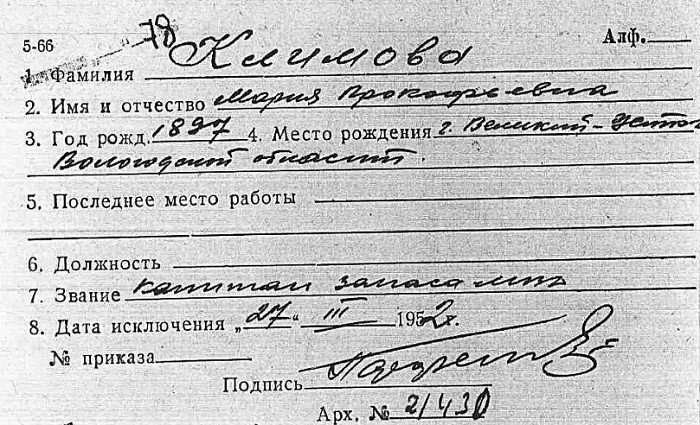 5-66 78 Алф.
1. Фамилия Климова
2. Имя и отчество Мария Прокофьевна
3. Год рожд. 1897 4. Место рождения г. Великий-Устюг
Вологодской области.
5. Последнее место работы
6. Должность
7. Звание капитан запаса
8. Дата исключения „27“ III 1952г.
№ приказа
Подпись
Арх. № 21430